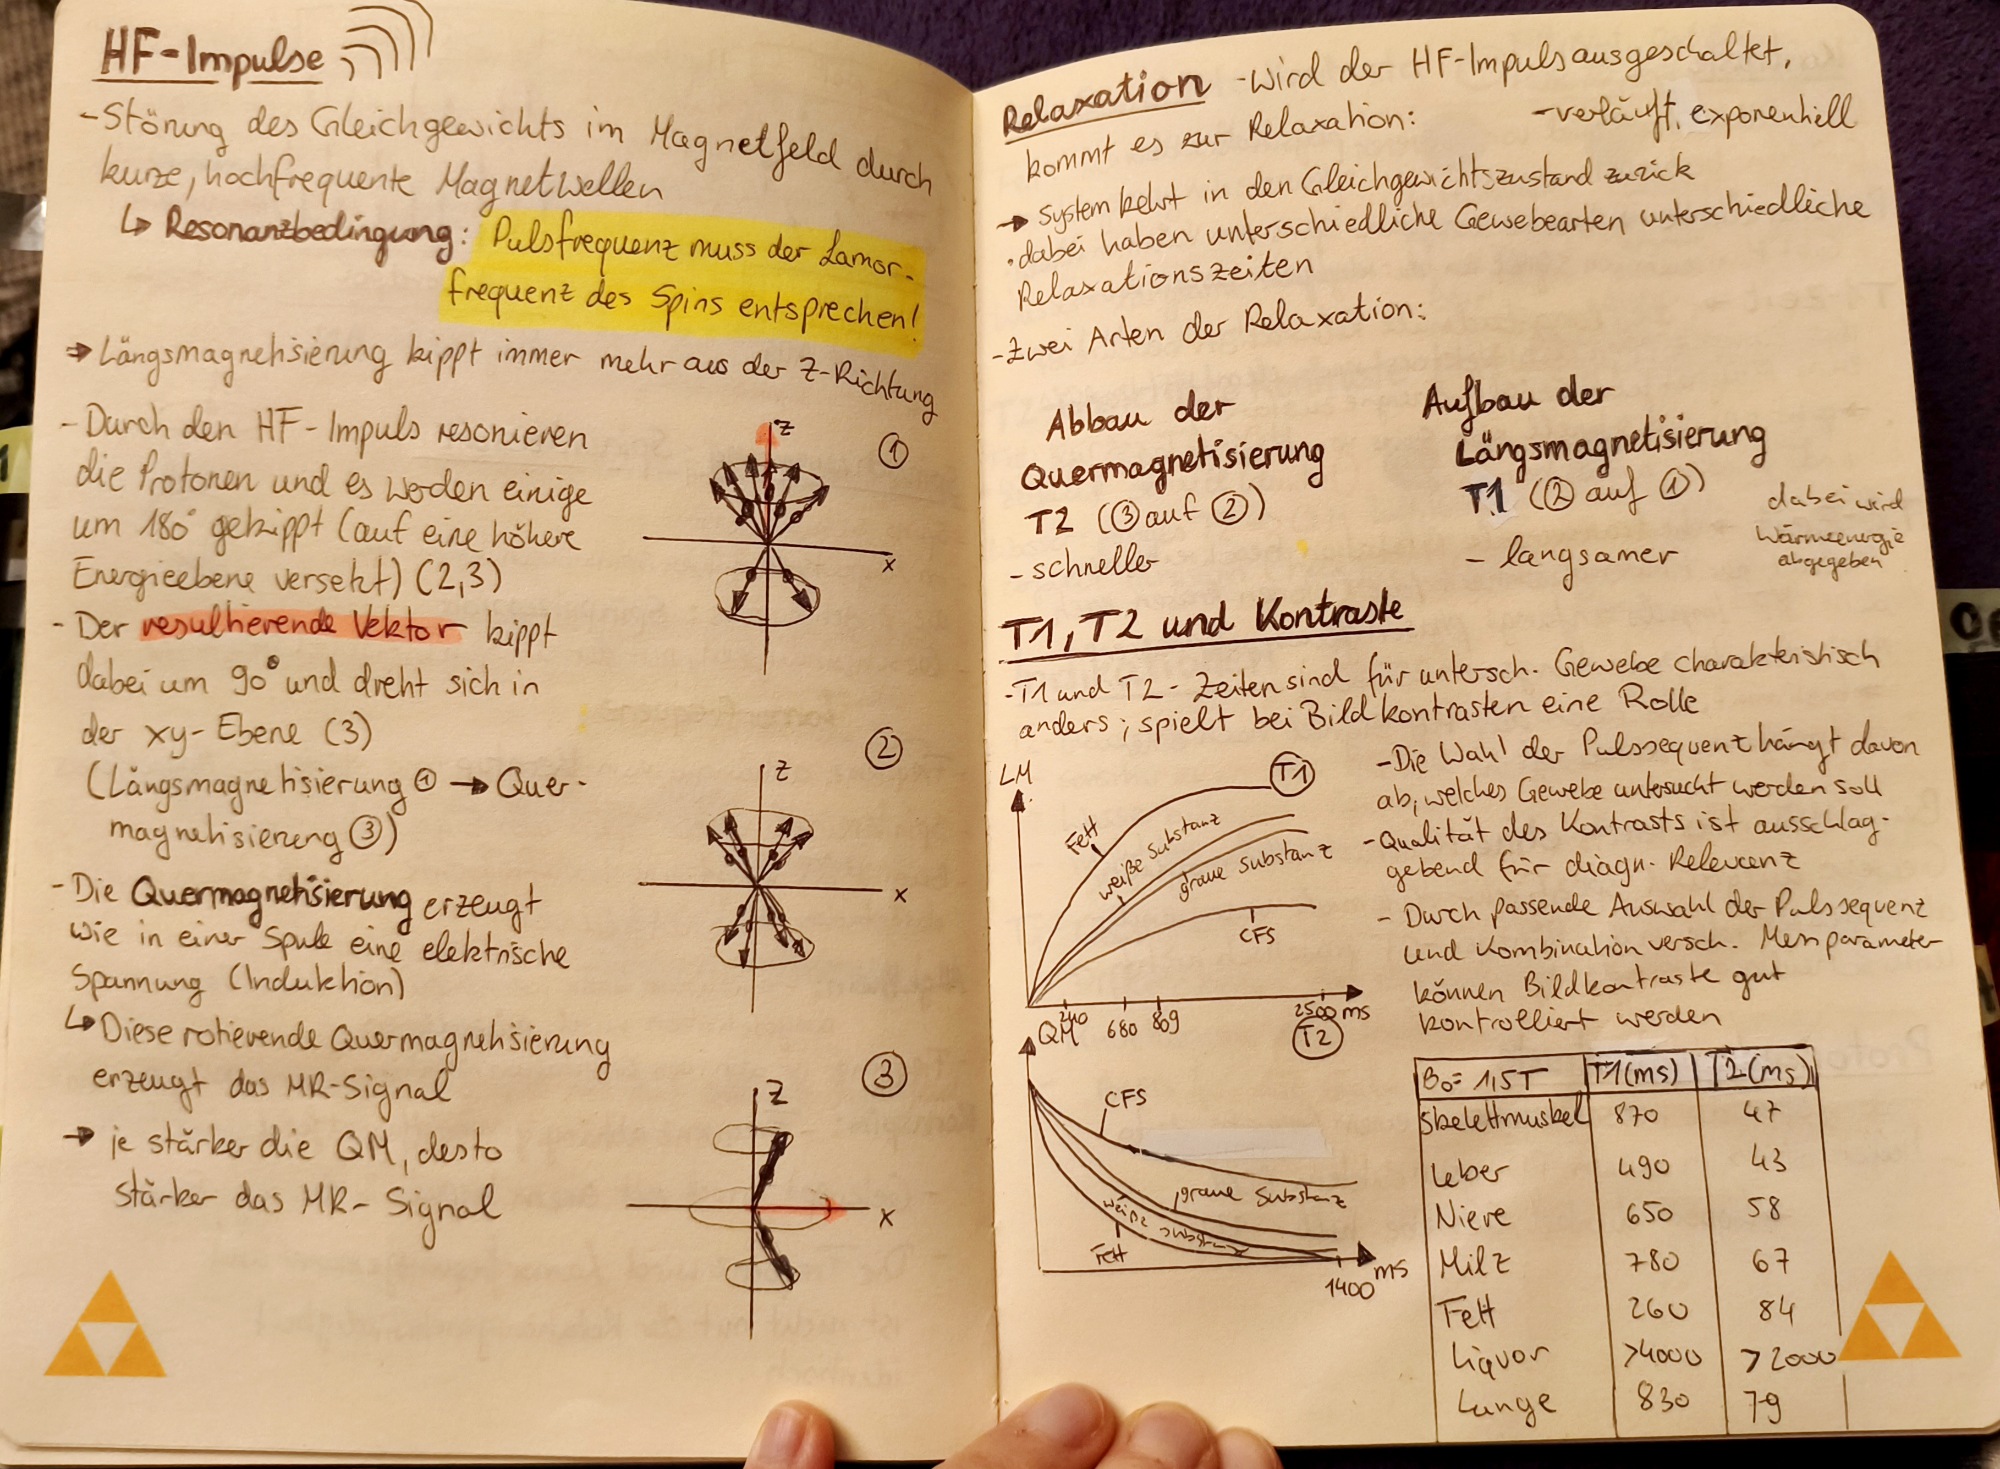 HF-Impulse
-Störung des Gleichgewichts im Magnetfeld durch
kurze, hochfrequente Magnetwellen
↳ Resonanzbedingung: Pulsfrequenz muss der Lamor-
frequenz des Spins entsprechen!
⇒ Längsmagnetisierung kippt immer mehr aus der Z-Richtung
- Durch den HF-Impuls resonieren
die Protonen und es werden einige
um 180° gekippt (auf eine höhere
Energieebene versetzt) (2,3)
- Der resultierende Vektor kippt
dabei um 90° und dreht sich in
der xy-Ebene (3)
(Längsmagnetisierung ① → Quer-
magnetisierung ③)
- Die Quermagnetisierung erzeugt
wie in einer Spule eine elektrische
Spannung (Induktion)
↳ Diese rotierende Quermagnetisierung
erzeugt das MR-Signal
→ je stärker die QM, desto
stärker das MR-Signal
①
z
x
②
z
x
③
z
x
Relaxation -Wird der HF-Impuls ausgeschaltet,
kommt es zur Relaxation: -verläuft exponentiell
→ System kehrt in den Gleichgewichtszustand zurück
• dabei haben unterschiedliche Gewebearten unterschiedliche
Relaxationszeiten
-Zwei Arten der Relaxation:
Abbau der
Quermagnetisierung
T2 (③ auf ②)
- schneller
Aufbau der
Längsmagnetisierung
T1 (② auf ①)
- langsamer
dabei wird
Wärmeenergie
abgegeben
T1, T2 und Kontraste
-T1 und T2-Zeiten sind für untersch. Gewebe charakteristisch
anders; spielt bei Bildkontrasten eine Rolle
LM
T1
Fett
weiße Substanz
graue Substanz
CFS
240 680 809 2500 ms
QM
T2
CFS
graue Substanz
weiße Substanz
Fett
1400 ms
-Die Wahl der Pulssequenz hängt davon
ab, welches Gewebe untersucht werden soll
-Qualität des Kontrasts ist ausschlag-
gebend für diagn. Relevanz
- Durch passende Auswahl der Pulssequenz
und Kombination versch. Messparameter
können Bildkontraste gut
kontrolliert werden
B₀= 1,5T T1(ms) T2(ms)
Skelettmuskel 870 47
Leber 490 43
Niere 650 58
Milz 780 67
Fett 260 84
Liquor >4000 >2000
Lunge 830 79